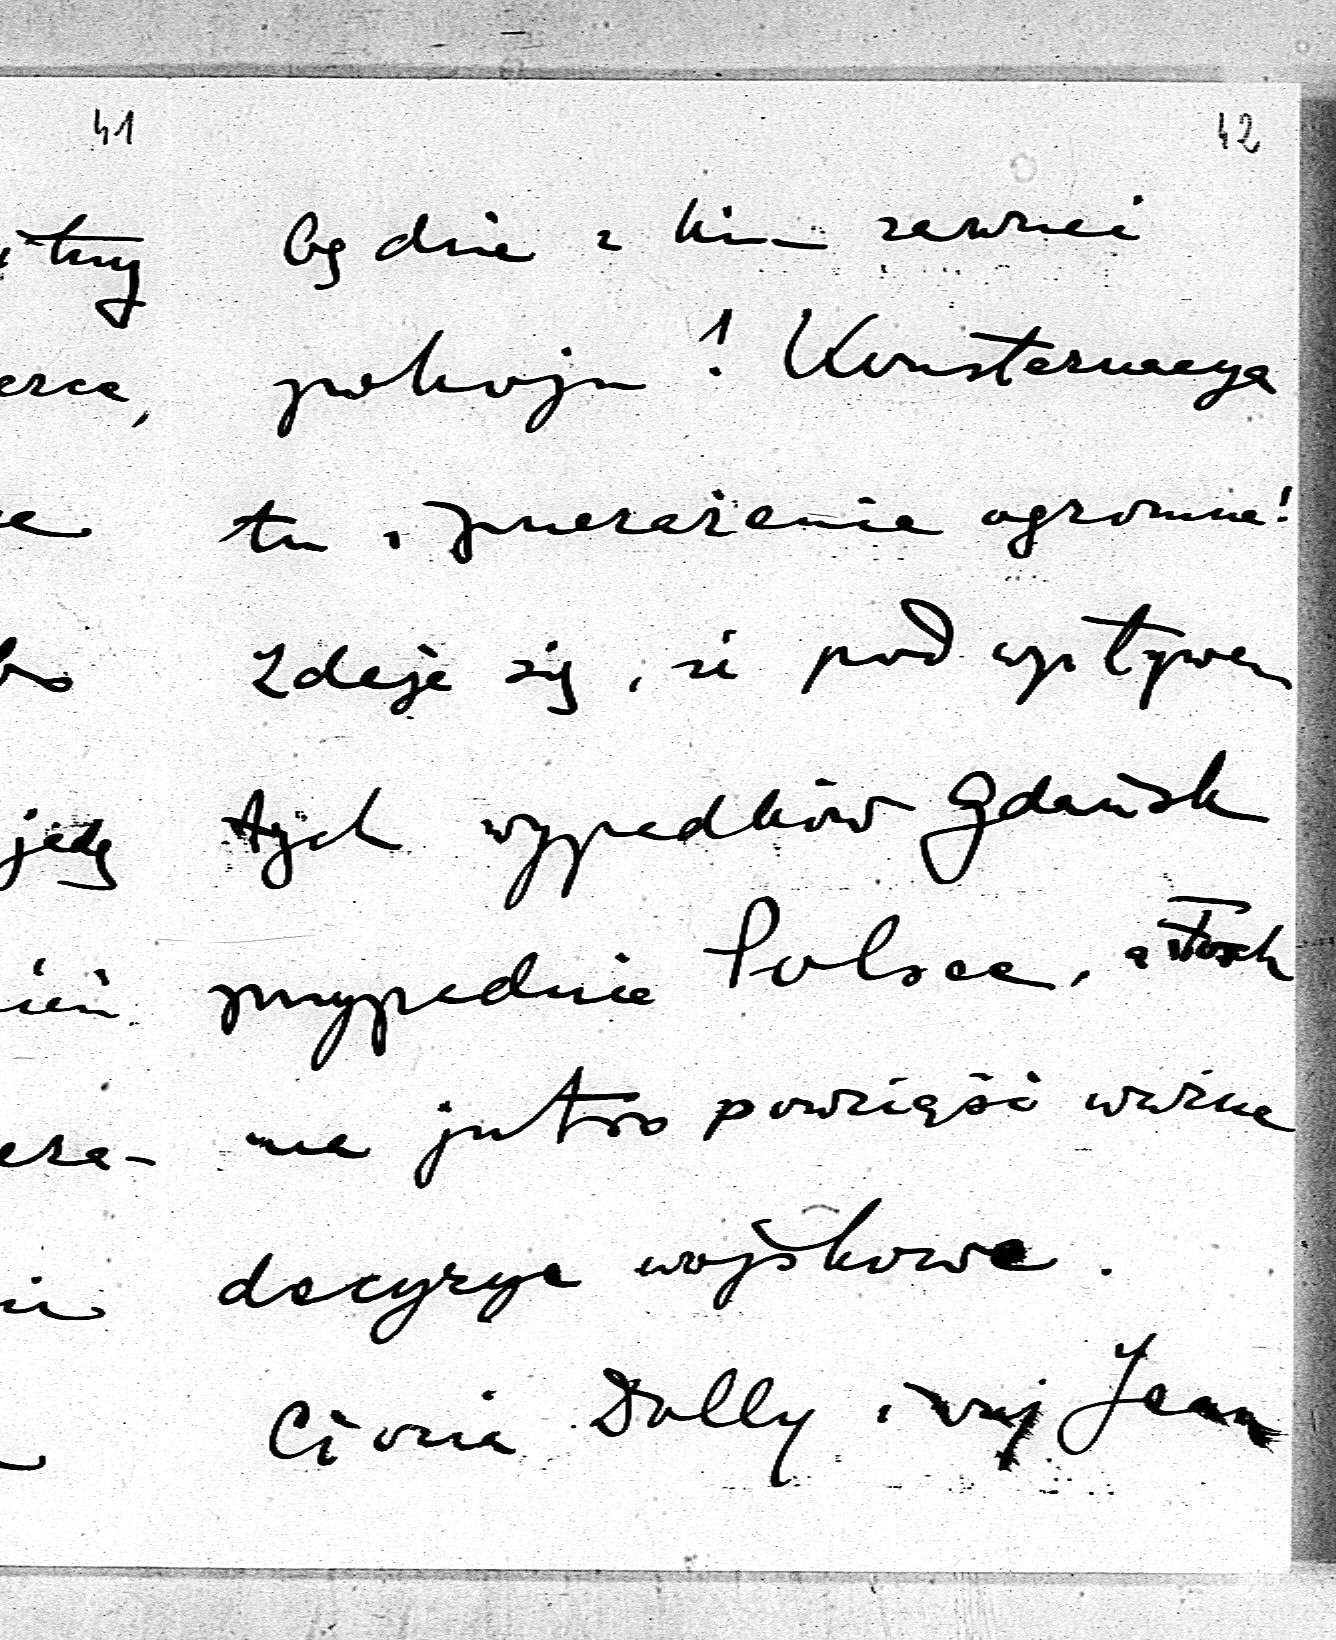 41
42
będzie z kim zawrzeć
pokoju! Konsternacya
tu i przerażenie ogromne!
Zdaje się, że pod wpływem
tych wypadków Gdańsk
przypadnie Polsce, a Foch
ma jutro powziąść ważne
decyzye wojskowe.
Ciocia Dolly i wuj Jean